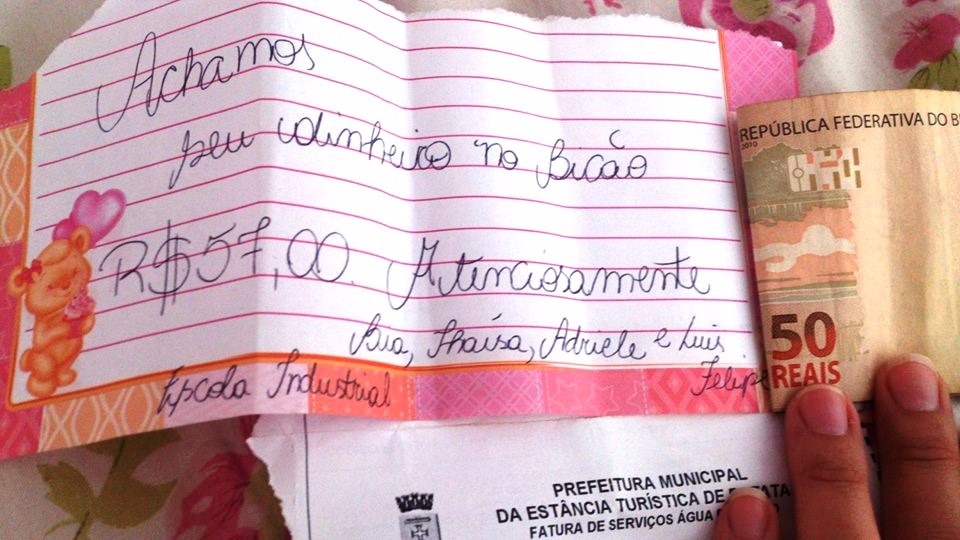 Achamos
seu dinheiro no Bicão
R$57,00. Atenciosamente
Bia, Thaísa, Adriele e Luis
Felipe
Escola Industrial
REPÚBLICA FEDERATIVA DO B
2010
50
REAIS
PREFEITURA MUNICIPAL
DA ESTÂNCIA TURÍSTICA DE
FATURA DE SERVIÇOS ÁGUA